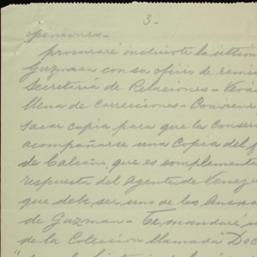 3-
opiniones.-
procuraré incluirte la última
Guzman con su oficio de remi
Secretaría de Relaciones - Vevá
llena de correcciones - Conviene
sacar copia para que la conser
acompañarse una copia del
de Calcaño, que es complementa
respuesta del Agente de Venezue
que debe ser uno de los Anexos
de Guzman - Te mandaré
de la Coleccion llamada "Doc